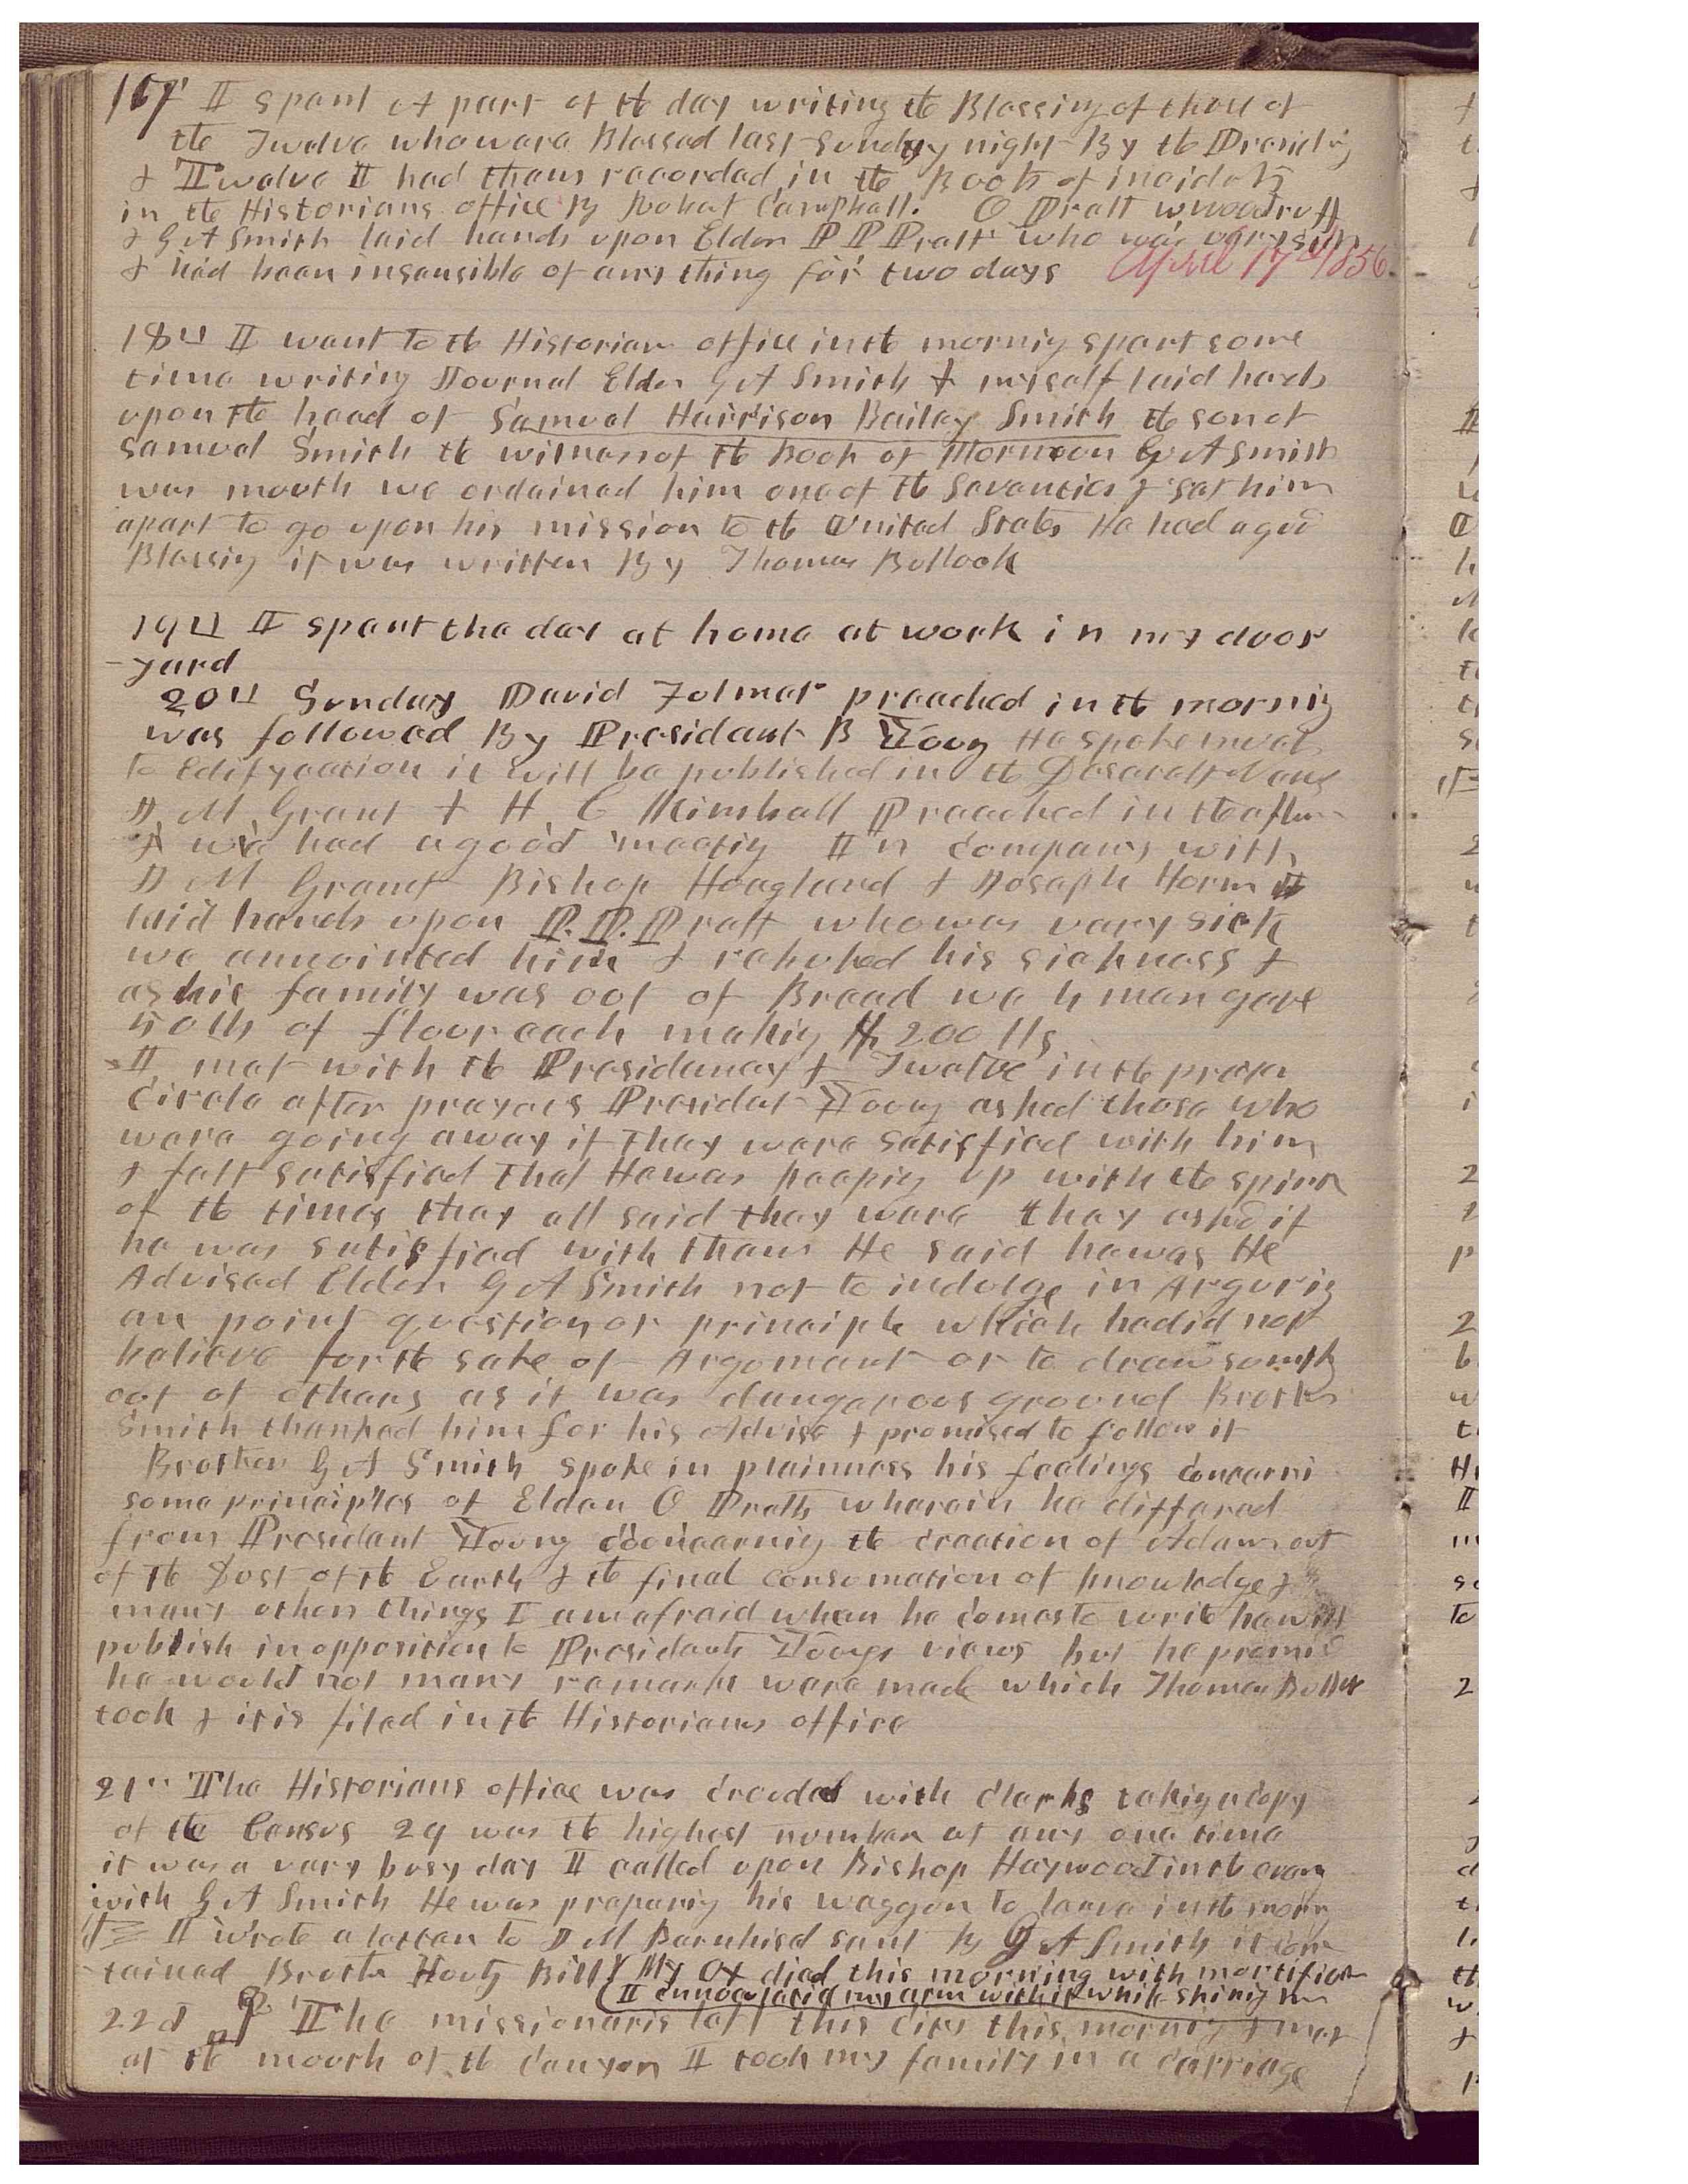 17 I spent A part of the day writing the Blessing of those of
the Twelve who ware Blessed last Sunday night By the Presidy
& Twelve I had them recorded in the Book of incidents
in the Historians office By Robert Campbell. O Pratt W Woodruff
& G A Smith laid hands upon Elder P P Pratt who was very sick
& had been insensible of any thing for two days April 17th 1856.
18th I went to the Historian office in the mornig spent some
time writing Journal Elder G A Smith & myself laid hands
upon the head of Samuel Harrison Bailey Smith the son of
Samuel Smith the witness of the Book of Mormon G A Smith
was mouth we ordained him one of the Seventies & set him
apart to go upon his mission to the United States He had a good
Blessig it was written By Thomas Bullock
19th I spent the day at home at work in my door
-yard
20th Sunday David Folmer preached in the mornig
was followed By President B Young He spoke much
to Edifycation it will be published in the Deseret News
J. M. Grant & H C Kimball Preached in the aftern
& we had a good meetig I in company with
J M Grant Bishop Hoagland & Joseph Horn
laid hands upon P. P. Pratt who was very sick
we annointed him & rebuked his sickness &
as his family was out of Bread we 4 men gave
50 lb of flour each makig 200 lbs
I met with the Presidency & Twelve in the prayer
Circle after prayers President Young asked those who
ware going away if they ware satisfied with him
& felt satisfied that He was keepig up with the spirit
of the times they all said they ware they asked if
he was satisfied with them He said he was He
Advised Elder G A Smith not to indulge in Arguing
an point question or principle which he did not
believe for the sake of Argument or to draw somthg
out of others as it was dangerous ground Brother
Smith thanked him for his Advise & promised to follow it
Brother G A Smith spoke in plainness his feelings concerni
some principles of Elder O Pratts wherein he differed
from President Young concernig the creation of Adam out
of the Dust of the Earth & the final consumation of knowledge &
many other things I am afraid when he comes to write he will
publish in opposition to Presidents Youngs views but he promis
he would not many remarks ware made which Thomas Bullock
took & it is filed in the Historians office
21st The Historians office was crouded with Clarks takig a Copy
of the Census 29 was the highest number at any one time
it was a very busy day I called upon Bishop Haywood in the eveng
with G A Smith He was preparig his waggon to leave in the morng
I wrote a letter to J M Barnhisel sent By G A Smith it con
-tained Brother Houtz Bill My Ox died this morning with mortifican
I innoculated my arm with it while skinig him
22d The missionaris left this city this mornig & met
at the mouth of the Canyon I took my family in a carriage